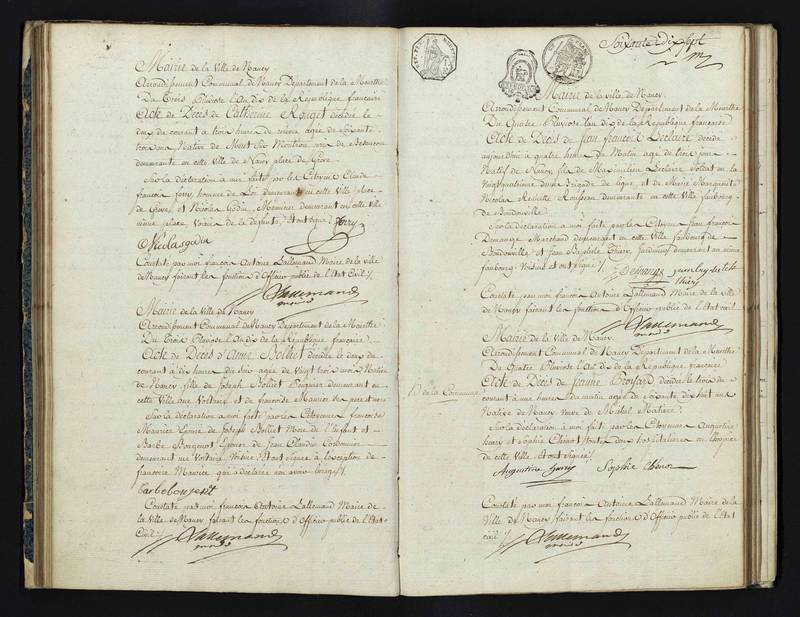 Mairie de la Ville de Nancy
Arrondissement Communal de Nancy Département de la Meurthe
Du Trois Pluviose l'an dix de la République française
Acte de Décès de Catherine Rouget décédée le
deux du courant à trois heures de âgée de soixante
trois ans Native de près de Besançon
demeurante en cette ville de Nancy place de Grève
Sur la déclaration à moi faite par les Citoyens Claude
françois ferry homme de Loi demeurant en cette Ville place
de Grève, et Nicolas Godin, Menuisier demeurant en cette ville
même place Voisins de la défunte, et ont signé
ferry
Nicolas godin
Constaté par moi françois Antoine Lallemand Maire de la ville
de Nancy faisant les fonctions d'Officier public de l'Etat Civil
Lallemand
maire
Mairie de la Ville de Nancy
Arrondissement Communal de Nancy Département de la Meurthe
Du Trois Pluviose l'an dix de la République française
Acte de Décès d'Anne Bolliet décédée le deux du
courant à dix heures du soir agée de Vingt trois mois Native
de Nancy fille de Joseph Bolliet demeurant en
cette Ville rue Voltaire, et de françoise Maurice ses père et mère
Sur la déclaration à moi faite par les Citoyennes françoise
Maurice Epouse de Joseph Bolliet Mère de l'Enfant et
Barbe Epouse de Jean Claude
demeurant rue Voltaire, Voisine, et ont signé à l'exception de
françoise Maurice qui a déclaré ne savoir
Constaté par moi françois Antoine Lallemand Maire de
la Ville de Nancy faisant les fonctions d'Officier public de l'Etat
Civil
Lallemand
maire
Soixante Dix Sept
Mairie de la ville de Nancy
Arrondissement Communal de Nancy Département de la Meurthe
Du Quatre Pluviose l'an dix de la République française
Acte de Décès de Jean françois Leclaire décédé
aujourdhui à quatre heures du Matin agé de trois jours
Natif de Nancy fils de Maximilien Leclaire Soldat en la
demie Brigade de Ligne, et de Marie Marguerite
Nicolas demeurante en cette Ville faubourg
de Boudonville
Sur la déclaration à moi faite par les Citoyens Jean françois
Demange Marchand demeurant en cette Ville faubourg de
Boudonville, et Jean Baptiste Thiery, Jardinier demeurant au même
faubourg Voisins et ont signé
J Demange jean baptiste
thiery
Constaté par moi françois Antoine Lallemand Maire de la ville
de Nancy faisant les fonctions d'Officier public de l'Etat civil
Lallemand
maire
Mairie de la Ville de Nancy
Arrondissement Communal de Nancy Département de la Meurthe
Du Quatre Pluviose l'an dix de la République française
Acte de Décès de Jeanne décédée le trois du
courant à une heure du matin agée de soixante dix huit ans
Native de Nancy Veuve de Michel
Sur la déclaration à moi faite par les Citoyennes Augustine
et Sophie toutes deux hospitalières en l'hospice
de cette Ville et ont Signé
Augustine Sophie
Constaté par moi françois Antoine Lallemand Maire de la
Ville de Nancy faisant les fonctions d'Officier public de l'Etat
civil
Lallemand
maire